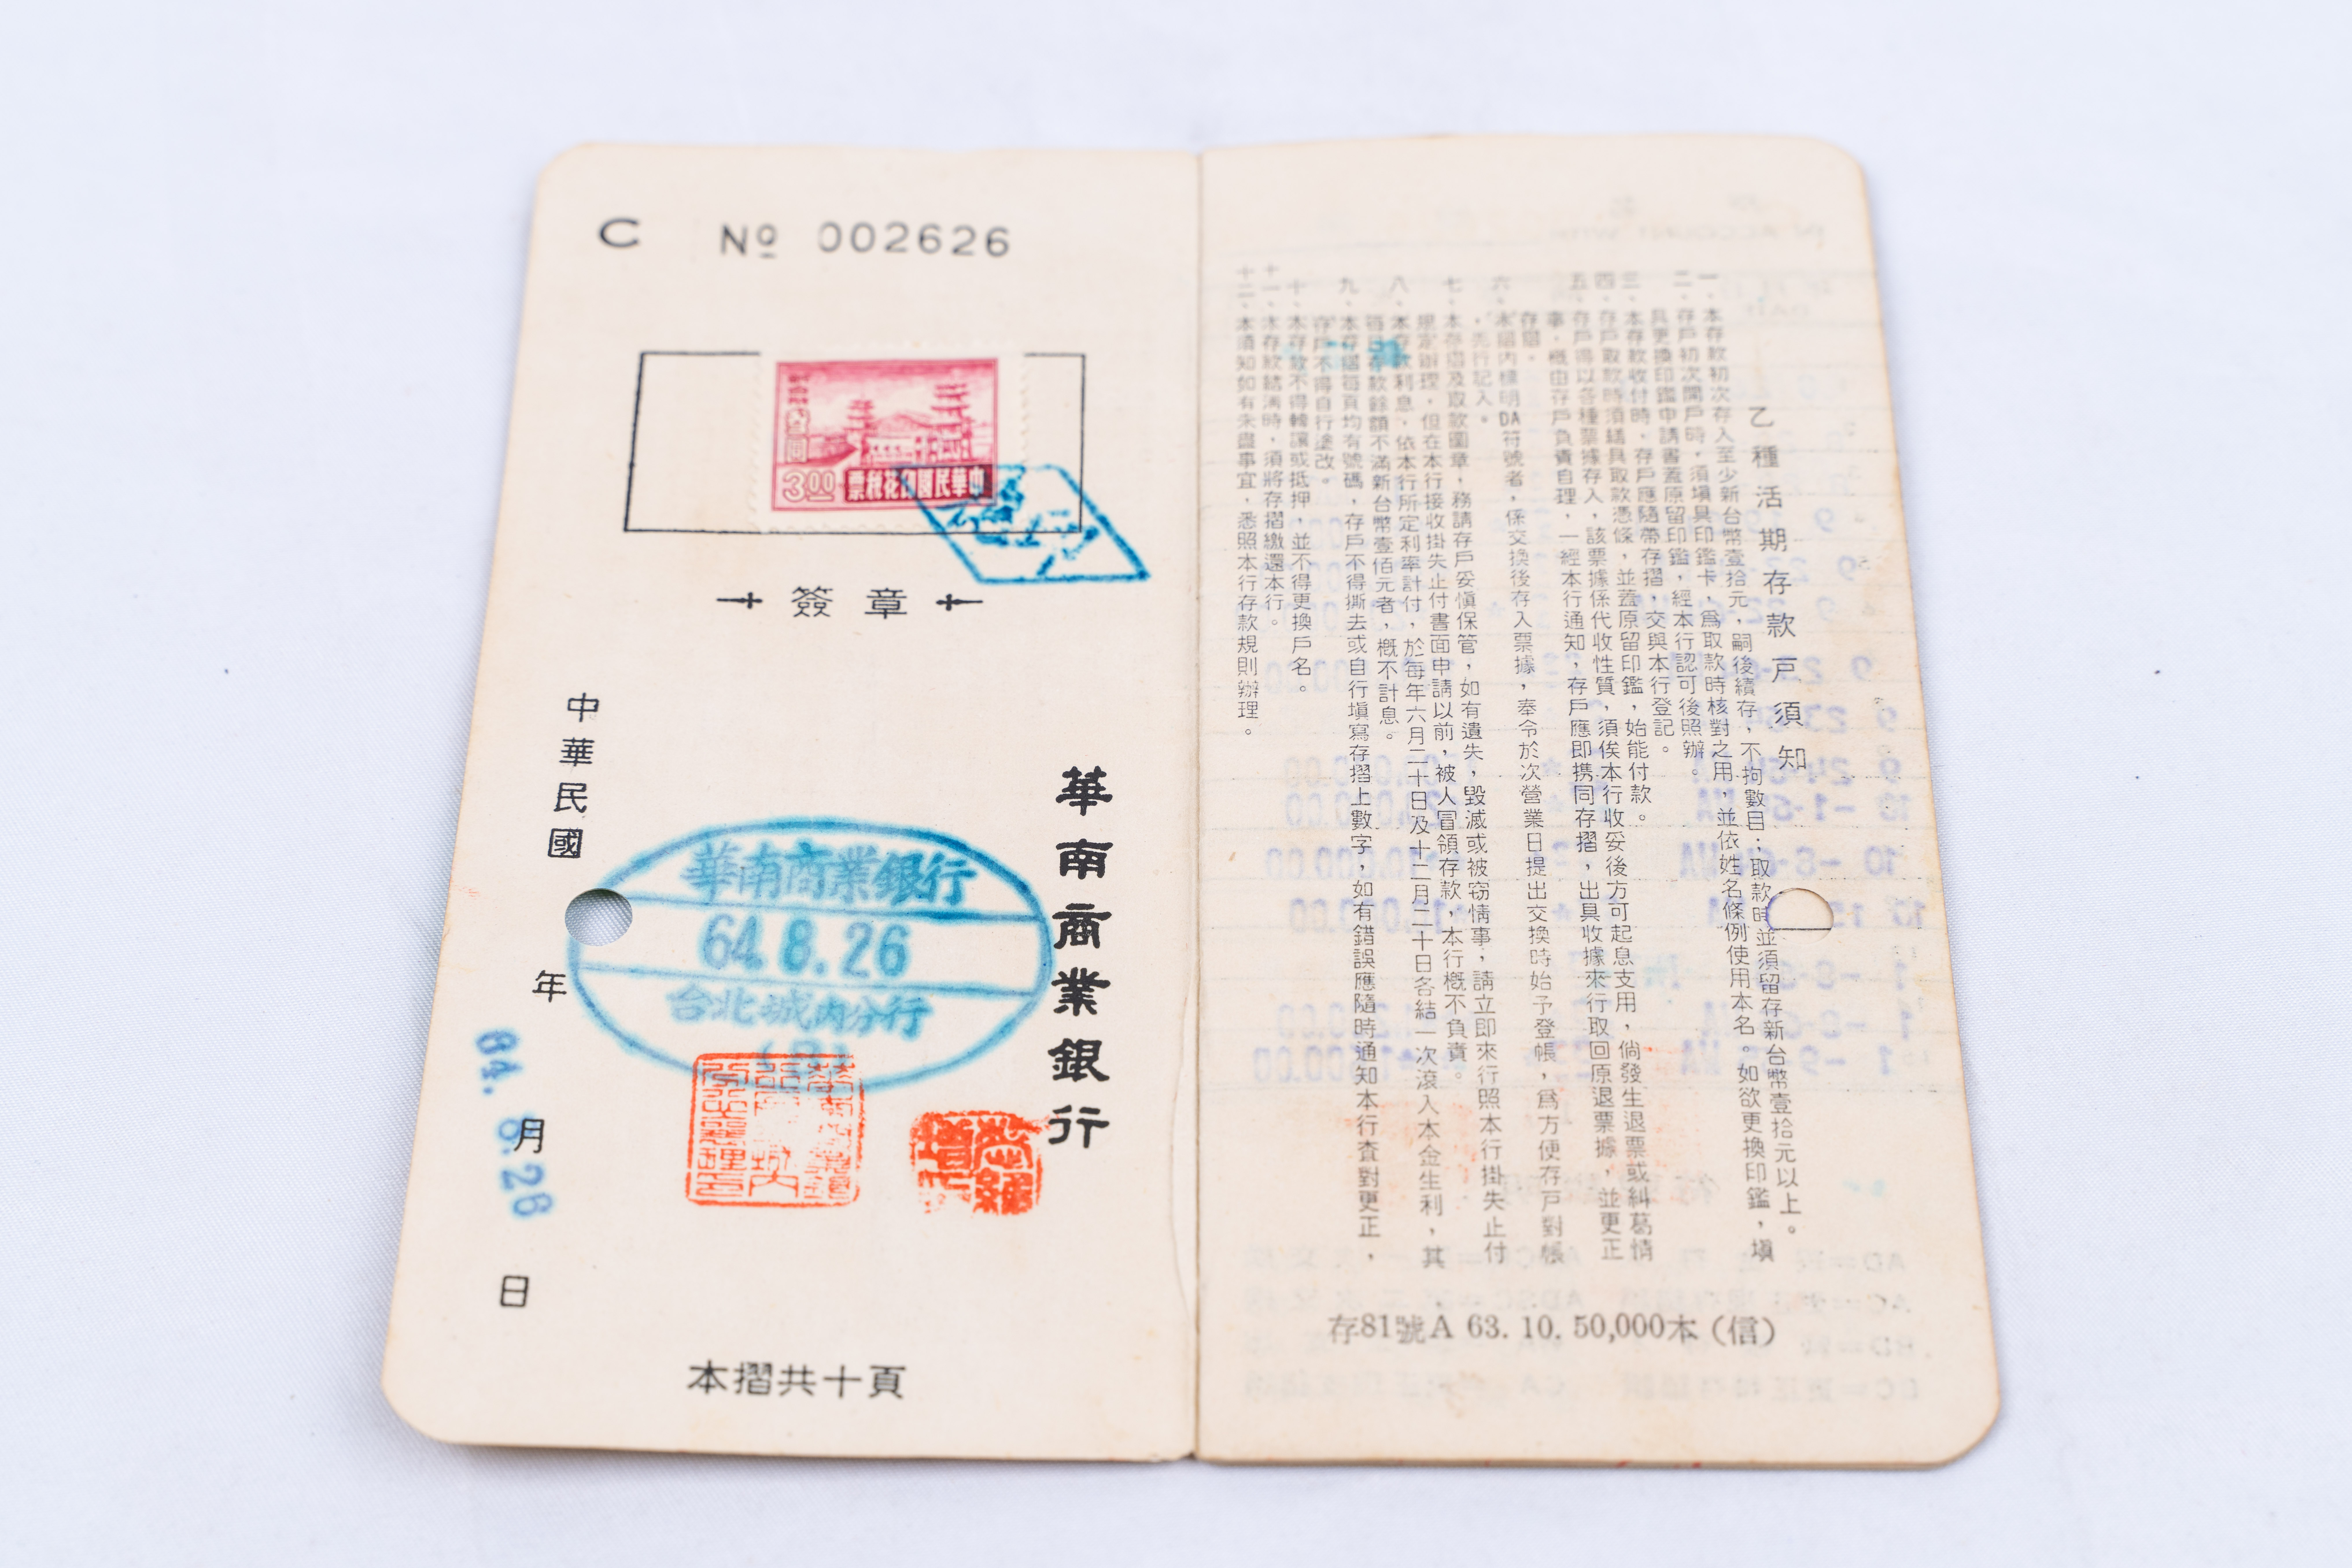 C № 002626
3.00 票稅花印國民華中
簽章
華南商業銀行
華南商業銀行
64.8.26
台北城內分行
中華民國 年 月 日
本摺共十頁
乙種活期存款戶須知
一、本存款初次存入至少新台幣壹拾元，嗣後續存，不拘數目；取款時並須留存新台幣壹拾元以上。
二、存戶初次開戶時，須填具印鑑卡，爲取款時核對之用，並依姓名條例使用本名。如欲更換印鑑，填
具更換印鑑申請書蓋原留印鑑，經本行認可後照辦。
三、本存款收付時，存戶應隨帶存摺，交與本行登記。
四、存戶取款時須繕具取款憑條，並蓋原留印鑑，始能付款。
五、存戶得以各種票據存入，該票據係代收性質，須俟本行收妥後方可起息支用，倘發生退票或糾葛情
事，概由存戶負責自理，一經本行通知，存戶應即携同存摺，出具收據來行取回原退票據，並更正
存摺。
六、本摺內標明DA符號者，係交換後存入票據，奉令於次營業日提出交換時始予登帳，爲方便存戶對帳
，先行記入。
七、本存摺及取款圖章，務請存戶妥愼保管，如有遺失，毀滅或被窃情事，請立即來行照本行掛失止付
規定辦理，但在本行接收掛失止付書面申請以前，被人冒領存款，本行概不負責。
八、本存款利息，依本行所定利率計付，於每年六月二十日及十二月二十日各結一次滾入本金生利，其
每日存款餘額不滿新台幣壹佰元者，概不計息。
九、本存摺每頁均有號碼，存戶不得撕去或自行塡寫存摺上數字，如有錯誤應隨時通知本行查對更正，
存戶不得自行塗改。
十、本存款不得轉讓或抵押，並不得更換戶名。
十一、本存款結淸時，須將存摺繳還本行。
十二、本須知如有未盡事宜，悉照本行存款規則辦理。
存81號A 63. 10. 50,000本（信）